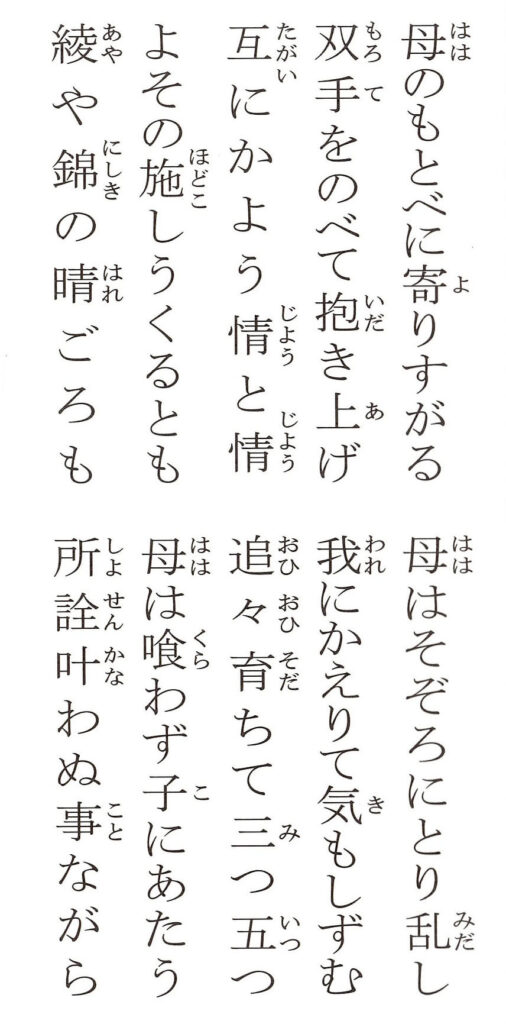 母のもとべに寄りすがる　母はそぞろにとり乱し
双手をのべて抱き上げ　我にかえりて気もしずむ
互にかよう情と情　追々育ちて三つ五つ
よその施しうくるとも　母は喰わず子にあたう
綾や錦の晴ごろも　所詮叶わぬ事ながら